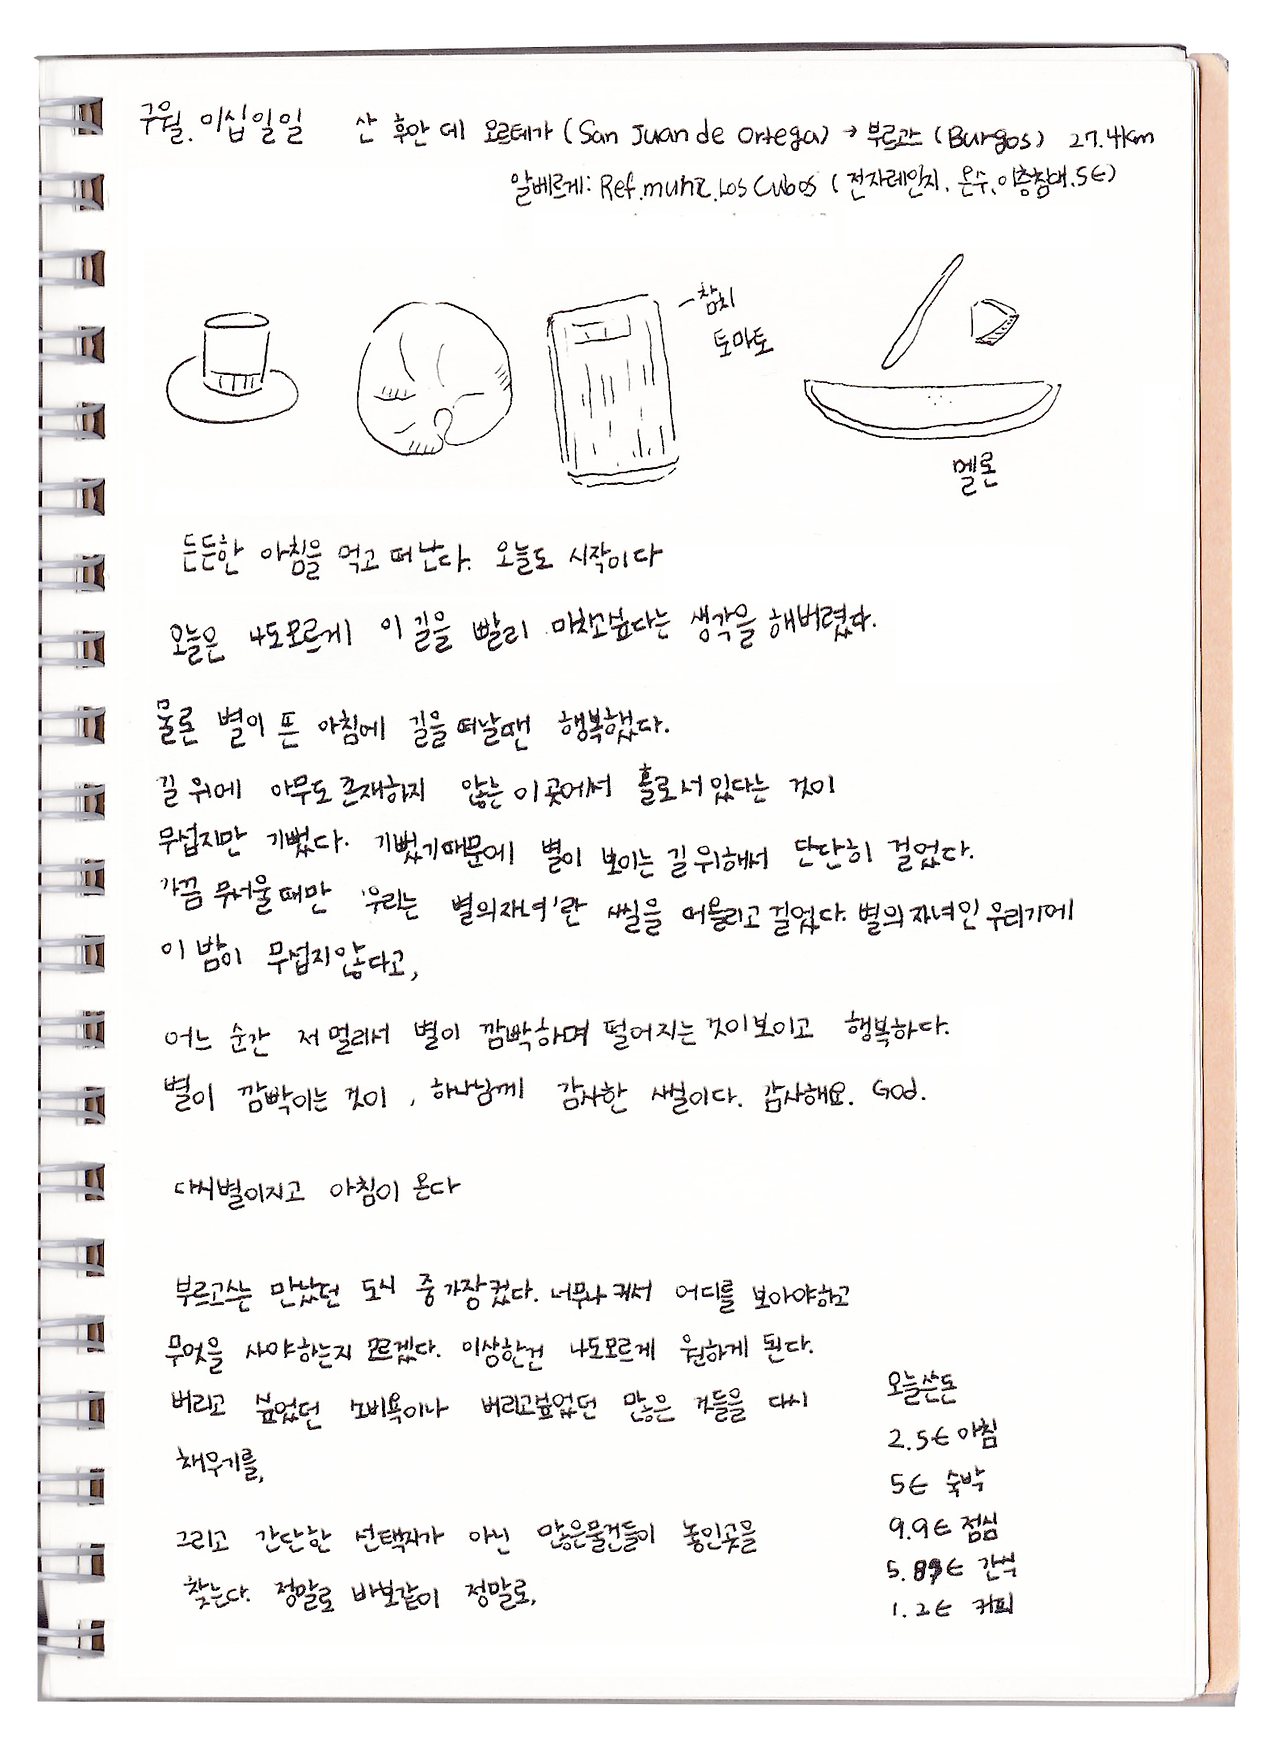 구월. 이십일일
산 후안 데 오르테가 (San Juan de Ortega) → 부르고스 (Burgos) 27.4km
알베르게: Ref.muni.Los Cubos (전자레인지, 온수, 이층침대, 5€)
참치
토마토
멜론
든든한 아침을 먹고 떠난다. 오늘도 시작이다
오늘은 나도모르게 이 길을 빨리 마치고싶다는 생각을 해버렸다.
물론 별이 뜬 아침에 길을 떠날땐 행복했다.
길 위에 아무도 존재하지 않는 이 곳에서 홀로 서 있다는 것이
무섭지만 기뻤다. 기뻤기때문에 별이 보이는 길 위에서 단단히 걸었다.
가끔 무서울때만 '우리는 별의자녀'란 사실을 떠올리고 걸었다. 별의 자녀인 우리기에
이 밤이 무섭지않다고,
어느 순간 저 멀리서 별이 깜빡하며 떨어지는 것이보이고 행복하다.
별이 깜빡이는 것이, 하나님께 감사한 사실이다. 감사해요. God.
다시별이지고 아침이 온다
부르고스는 만났던 도시 중 가장 컸다. 너무나 커서 어디를 보아야하고
무엇을 사야하는지 모르겠다. 이상한건 나도모르게 원하게 된다.
버리고 싶었던 소비욕이나 버리고싶었던 많은 것들을 다시
채우기를,
그리고 간단한 선택지가 아닌 많은물건들이 놓인곳을
찾는다. 정말로 바보같이 정말로,
오늘쓴돈
2.5€ 아침
5€ 숙박
9.9€ 점심
5.89€ 간식
1.2€ 커피